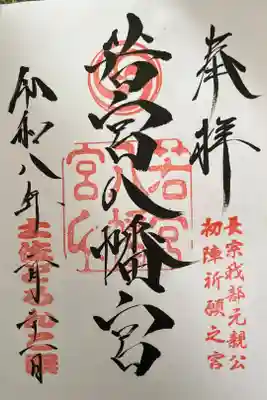 奉拝
長宗我部元親公
初陣祈願之宮
若宮八幡宮
若宮
八幡
宮
令和八年